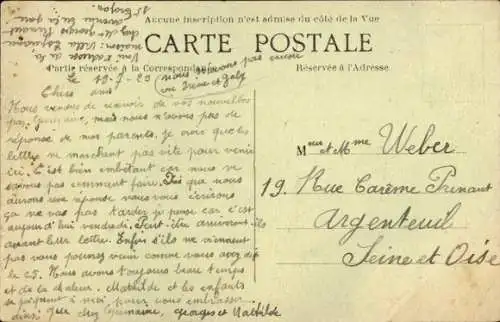 Aucune inscription n'est admise du côté de la Vue
CARTE POSTALE
Partie réservée à la Correspondance
Réservée à l'Adresse
Le 19-7-23
nous n'avons pas encore
vu Irène et
Chers amis
Nous venons de recevoir de vos nouvelles
par Germaine, mais nous n'avons pas de
réponse de nos parents, je crois que les
lettre ne marchent pas vite pour venir
ici. C'est bien embêtant car nous ne
savons pas comment faire. Dès que nous
aurons une réponse nous vous écrirons
ça ne vas pas tarder je pense car c'est
aujourd'hui vendredi. Peut être arriveront ils
avant leur lettre. Enfin s'ils ne viennent
pas vous pouvez venir comme vous avez dit
le 25. Nous avons toujours beau temps
et de la chaleur. Mathilde et les enfants
se joignent à moi pour vous embrasser
ainsi que chez Germaine, Georges et Mathilde
Voici l'adresse de la
maison: Villa
chez de
avenue de la gare
St
Mr et Mme Weber
19. Rue Carême Prenant
Argenteuil
Seine et Oise